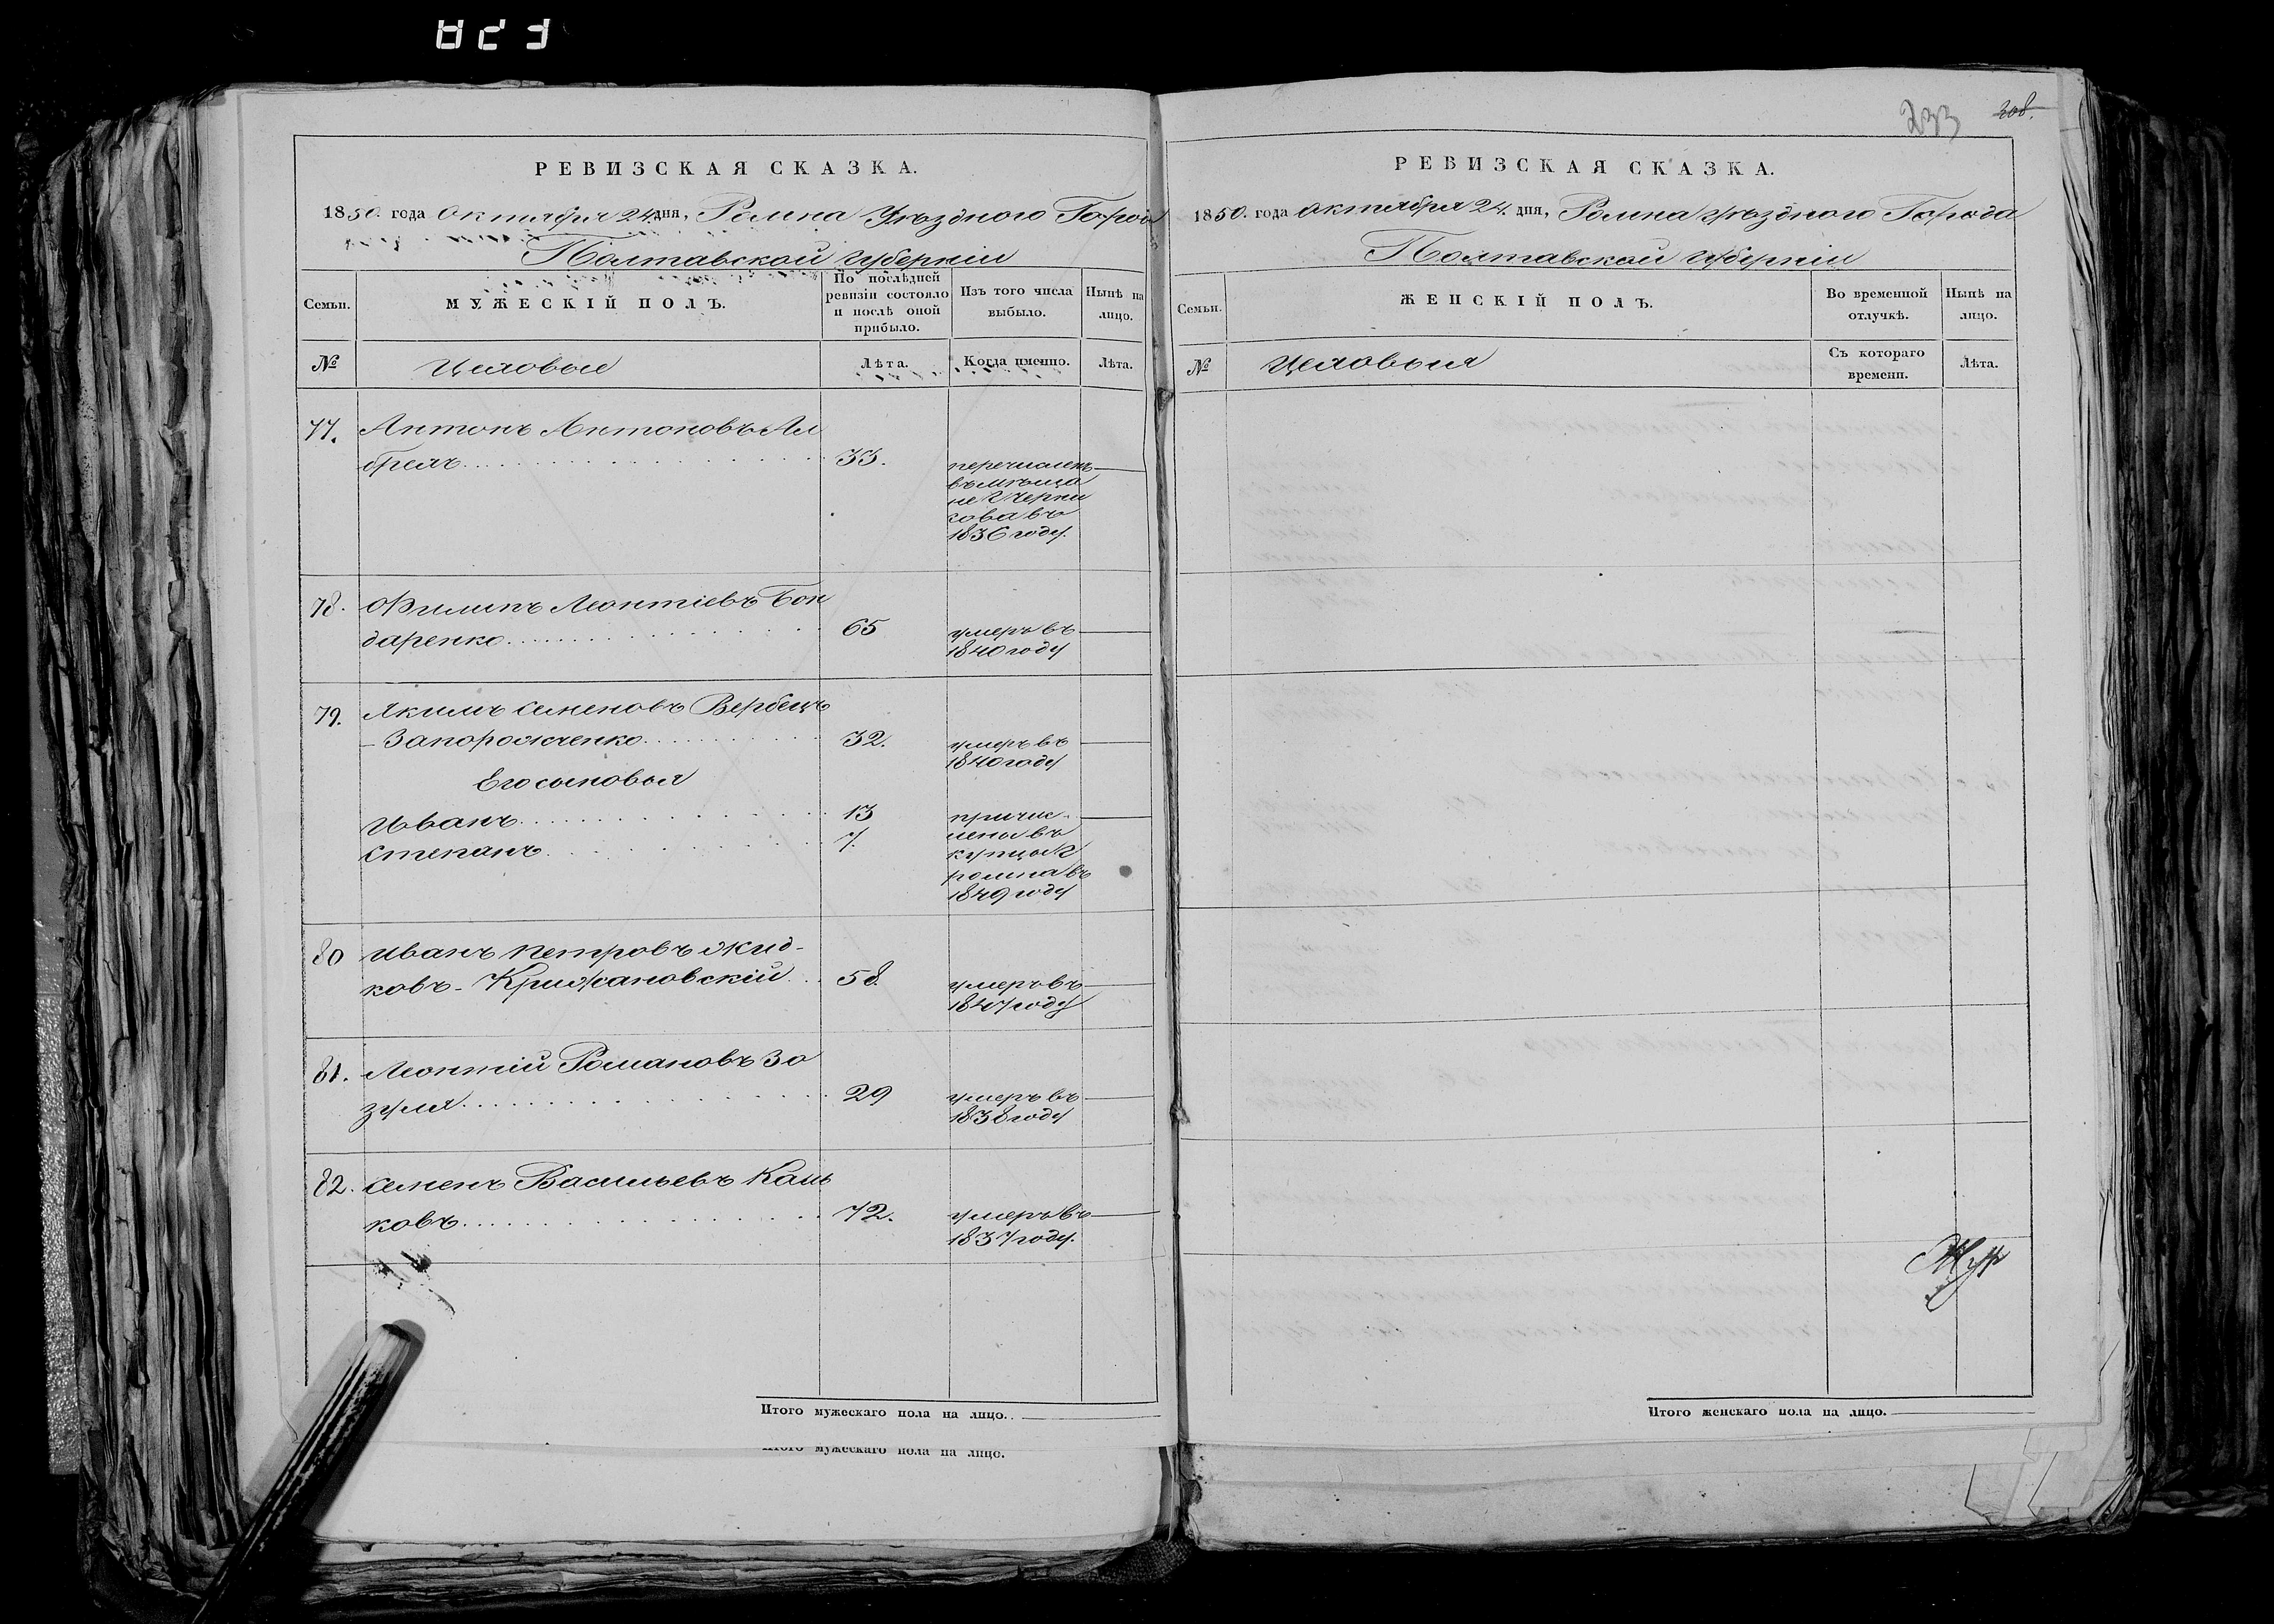 233 308.
РЕВИЗСКАЯ СКАЗКА.
1850. года Октября 24 дня, Ромна Уѣзднаго Города
Полтавской Губерніи
Семьи.
МУЖЕСКІЙ ПОЛЪ.
По послѣдней ревизіи состояло и послѣ оной прибыло.
Изъ того числа выбыло.
Нынѣ на лицо.
№
Цеховые
Лѣта.
Когда именно.
Лѣта.
77. Антонъ Антоновъ Ал
брехъ 33. перечисленъ
въ мѣща
не г Черни
гова въ
1836 году.
78. Филипъ Леонтіевъ Бон
даренко 65 умеръ въ
1840 году
79. Якимъ Семеновъ Вербецъ
- Запорожченко 32. умеръ въ
1840 году
Его сыновья
Иванъ 13 причис-
Степанъ 7. лены въ
купцы г
ромна въ
1849 году
80 Иванъ Петровъ Жид-
ковъ - Крижановскій 58. умеръ въ
1847 году
81. Леонтій Романовъ Зо
зуля 29 умеръ въ
1838 году
82. Семенъ Васильевъ Каш
ковъ 72. умеръ въ
1837 году.
Итого мужескаго пола на лицо.
Итого мужескаго пола на лицо.
РЕВИЗСКАЯ СКАЗКА.
1850. года Октября 24. дня, Ромна Уѣзднаго Города
Полтавской Губерніи
Семьи.
ЖЕНСКІЙ ПОЛЪ.
Во временной отлучкѣ.
Нынѣ на лицо.
№
Цеховыя
Съ котораго времени.
Лѣта.
Итого женскаго пола на лицо.